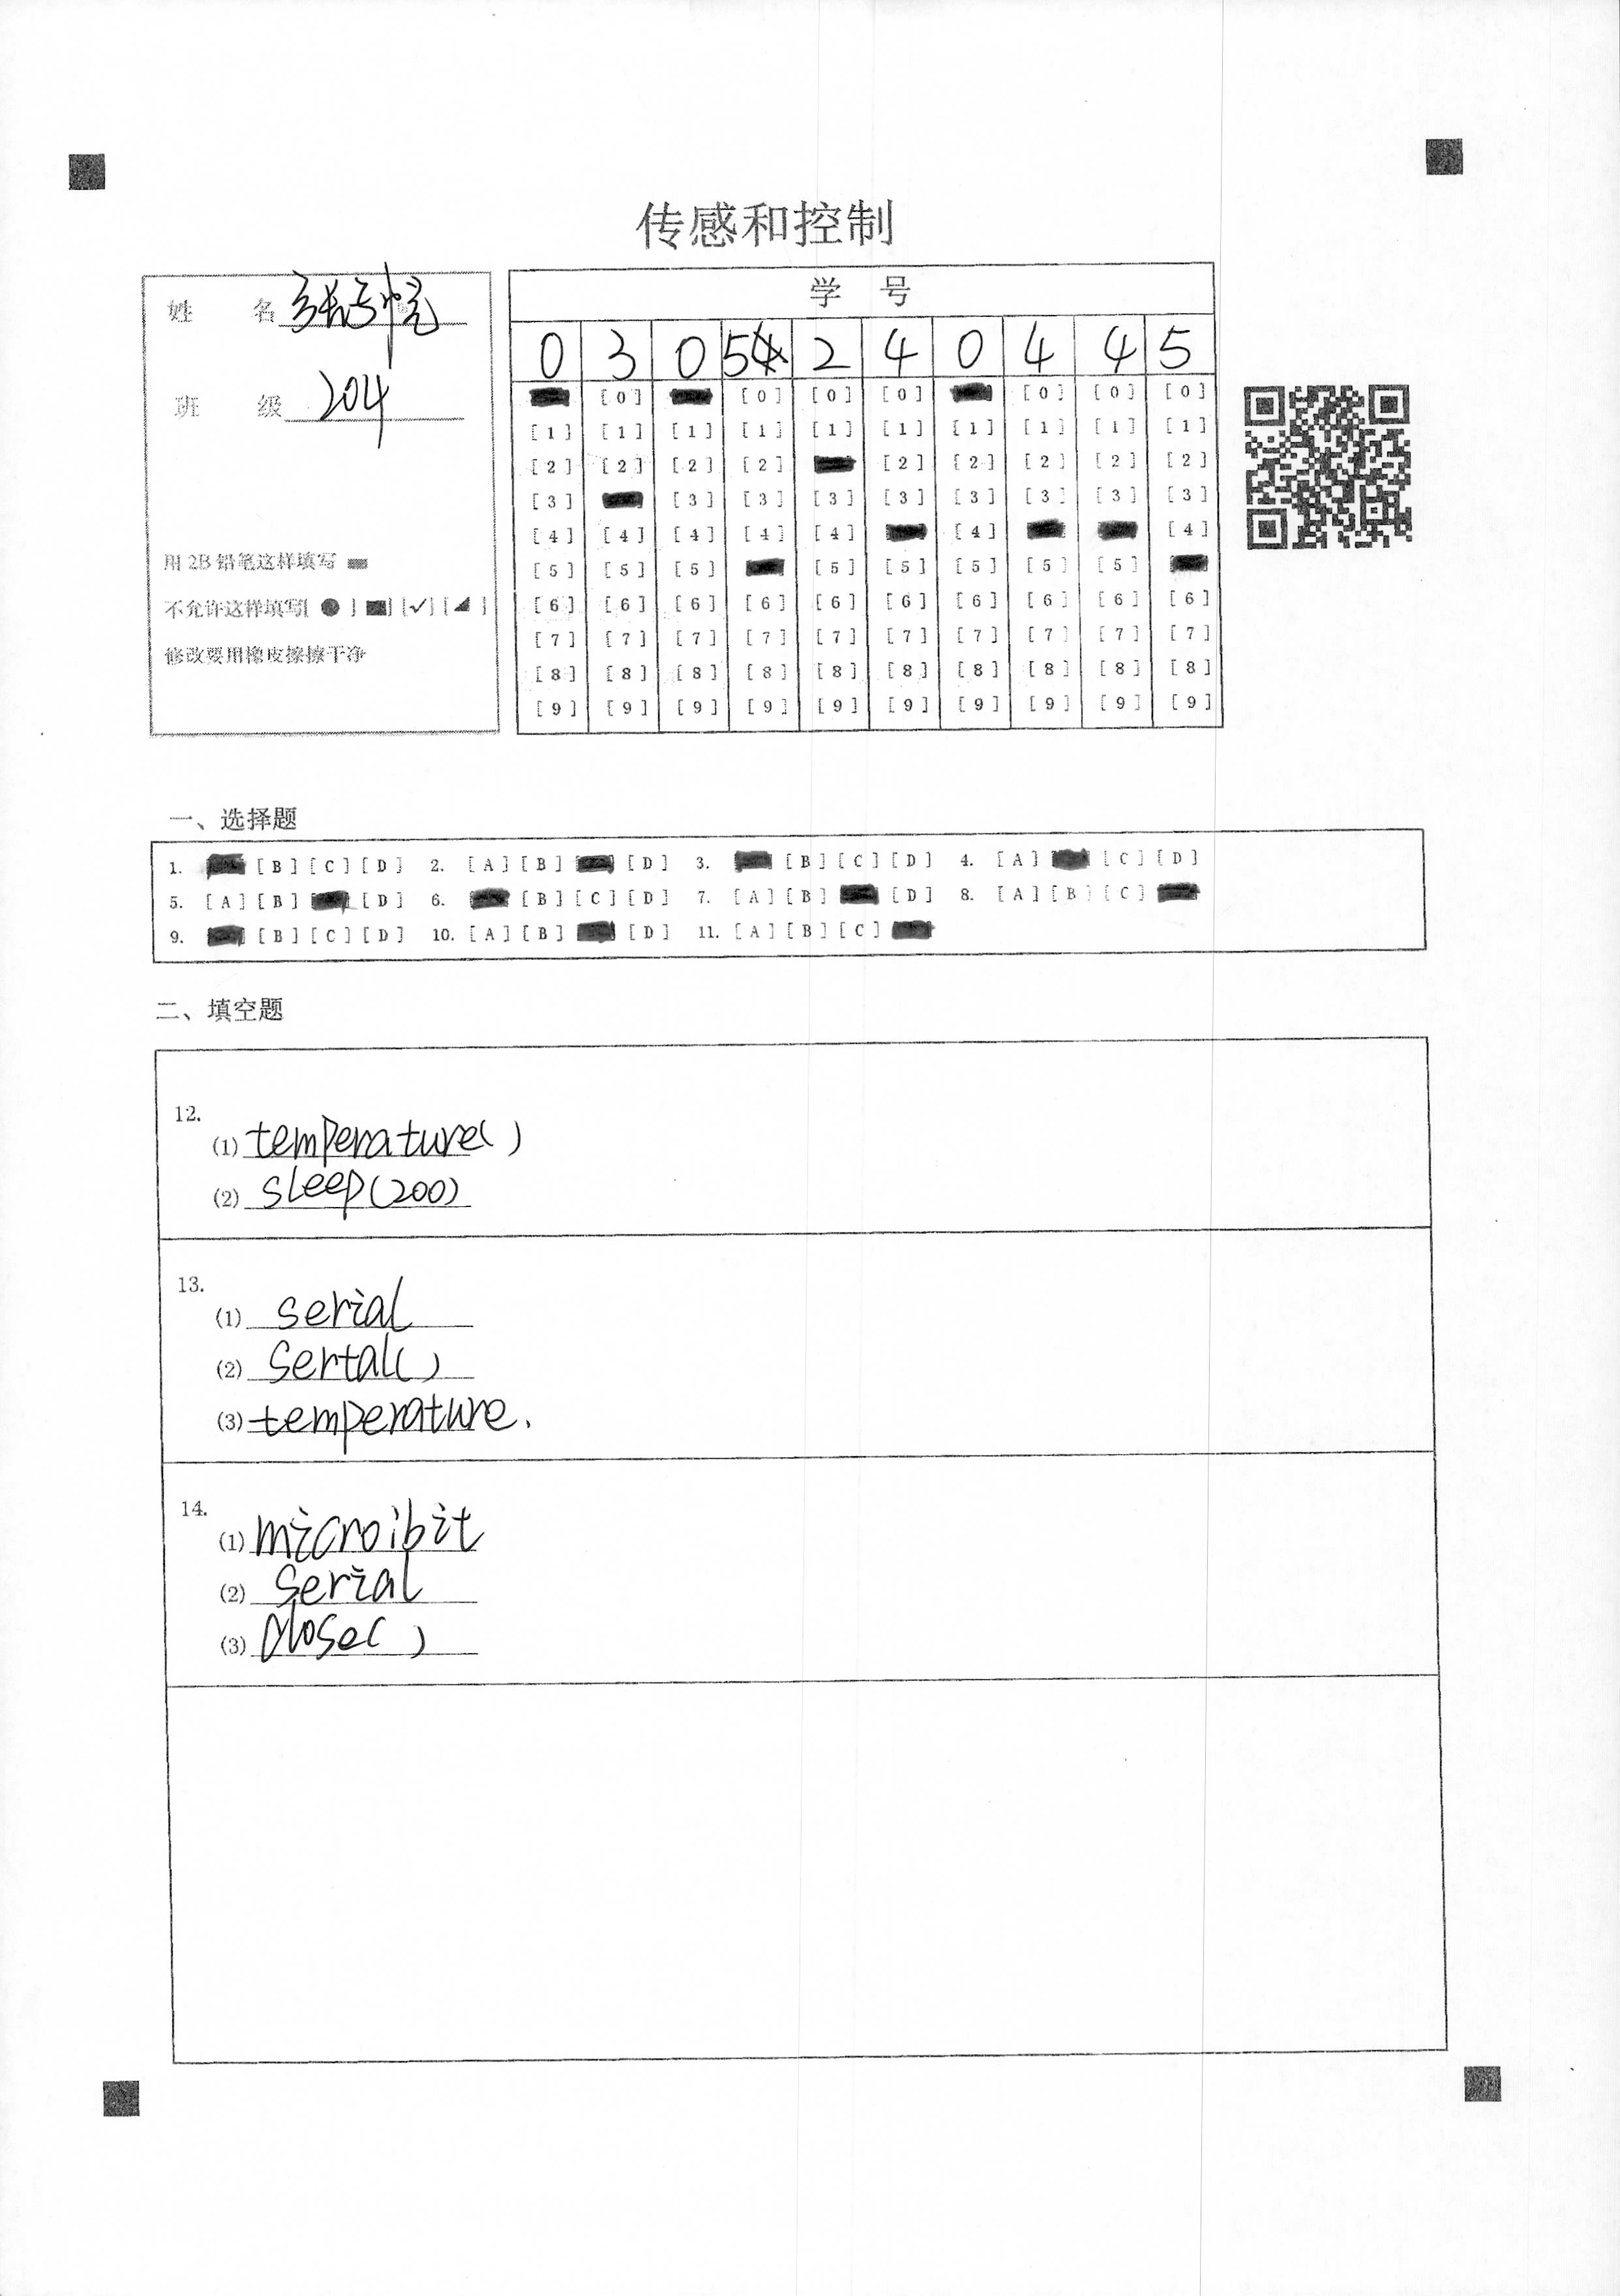 传感和控制
姓 名
班 级 204
用 2B 铅笔这样填写
不允许这样填写[ ● ] [■] [✓] [◢ ]
修改要用橡皮擦擦干净
学 号
0 3 0 5 2 4 0 4 4 5
[0] [0] [0] [0] [0] [0] [0]
[1] [1] [1] [1] [1] [1] [1] [1] [1] [1]
[2] [2] [2] [2] [2] [2] [2] [2] [2]
[3] [3] [3] [3] [3] [3] [3] [3] [3]
[4] [4] [4] [4] [4] [4] [4]
[5] [5] [5] [5] [5] [5] [5] [5]
[6] [6] [6] [6] [6] [6] [6] [6] [6] [6]
[7] [7] [7] [7] [7] [7] [7] [7] [7] [7]
[8] [8] [8] [8] [8] [8] [8] [8] [8] [8]
[9] [9] [9] [9] [9] [9] [9] [9] [9] [9]
一、选择题
1. [B] [C] [D] 2. [A] [B] [D] 3. [B] [C] [D] 4. [A] [C] [D]
5. [A] [B] [D] 6. [B] [C] [D] 7. [A] [B] [D] 8. [A] [B] [C]
9. [B] [C] [D] 10. [A] [B] [D] 11. [A] [B] [C]
二、填空题
12.
(1) temperature( )
(2) sleep(200)
13.
(1) serial
(2) sertal( )
(3) temperature.
14.
(1) microibit
(2) serial
(3) close( )